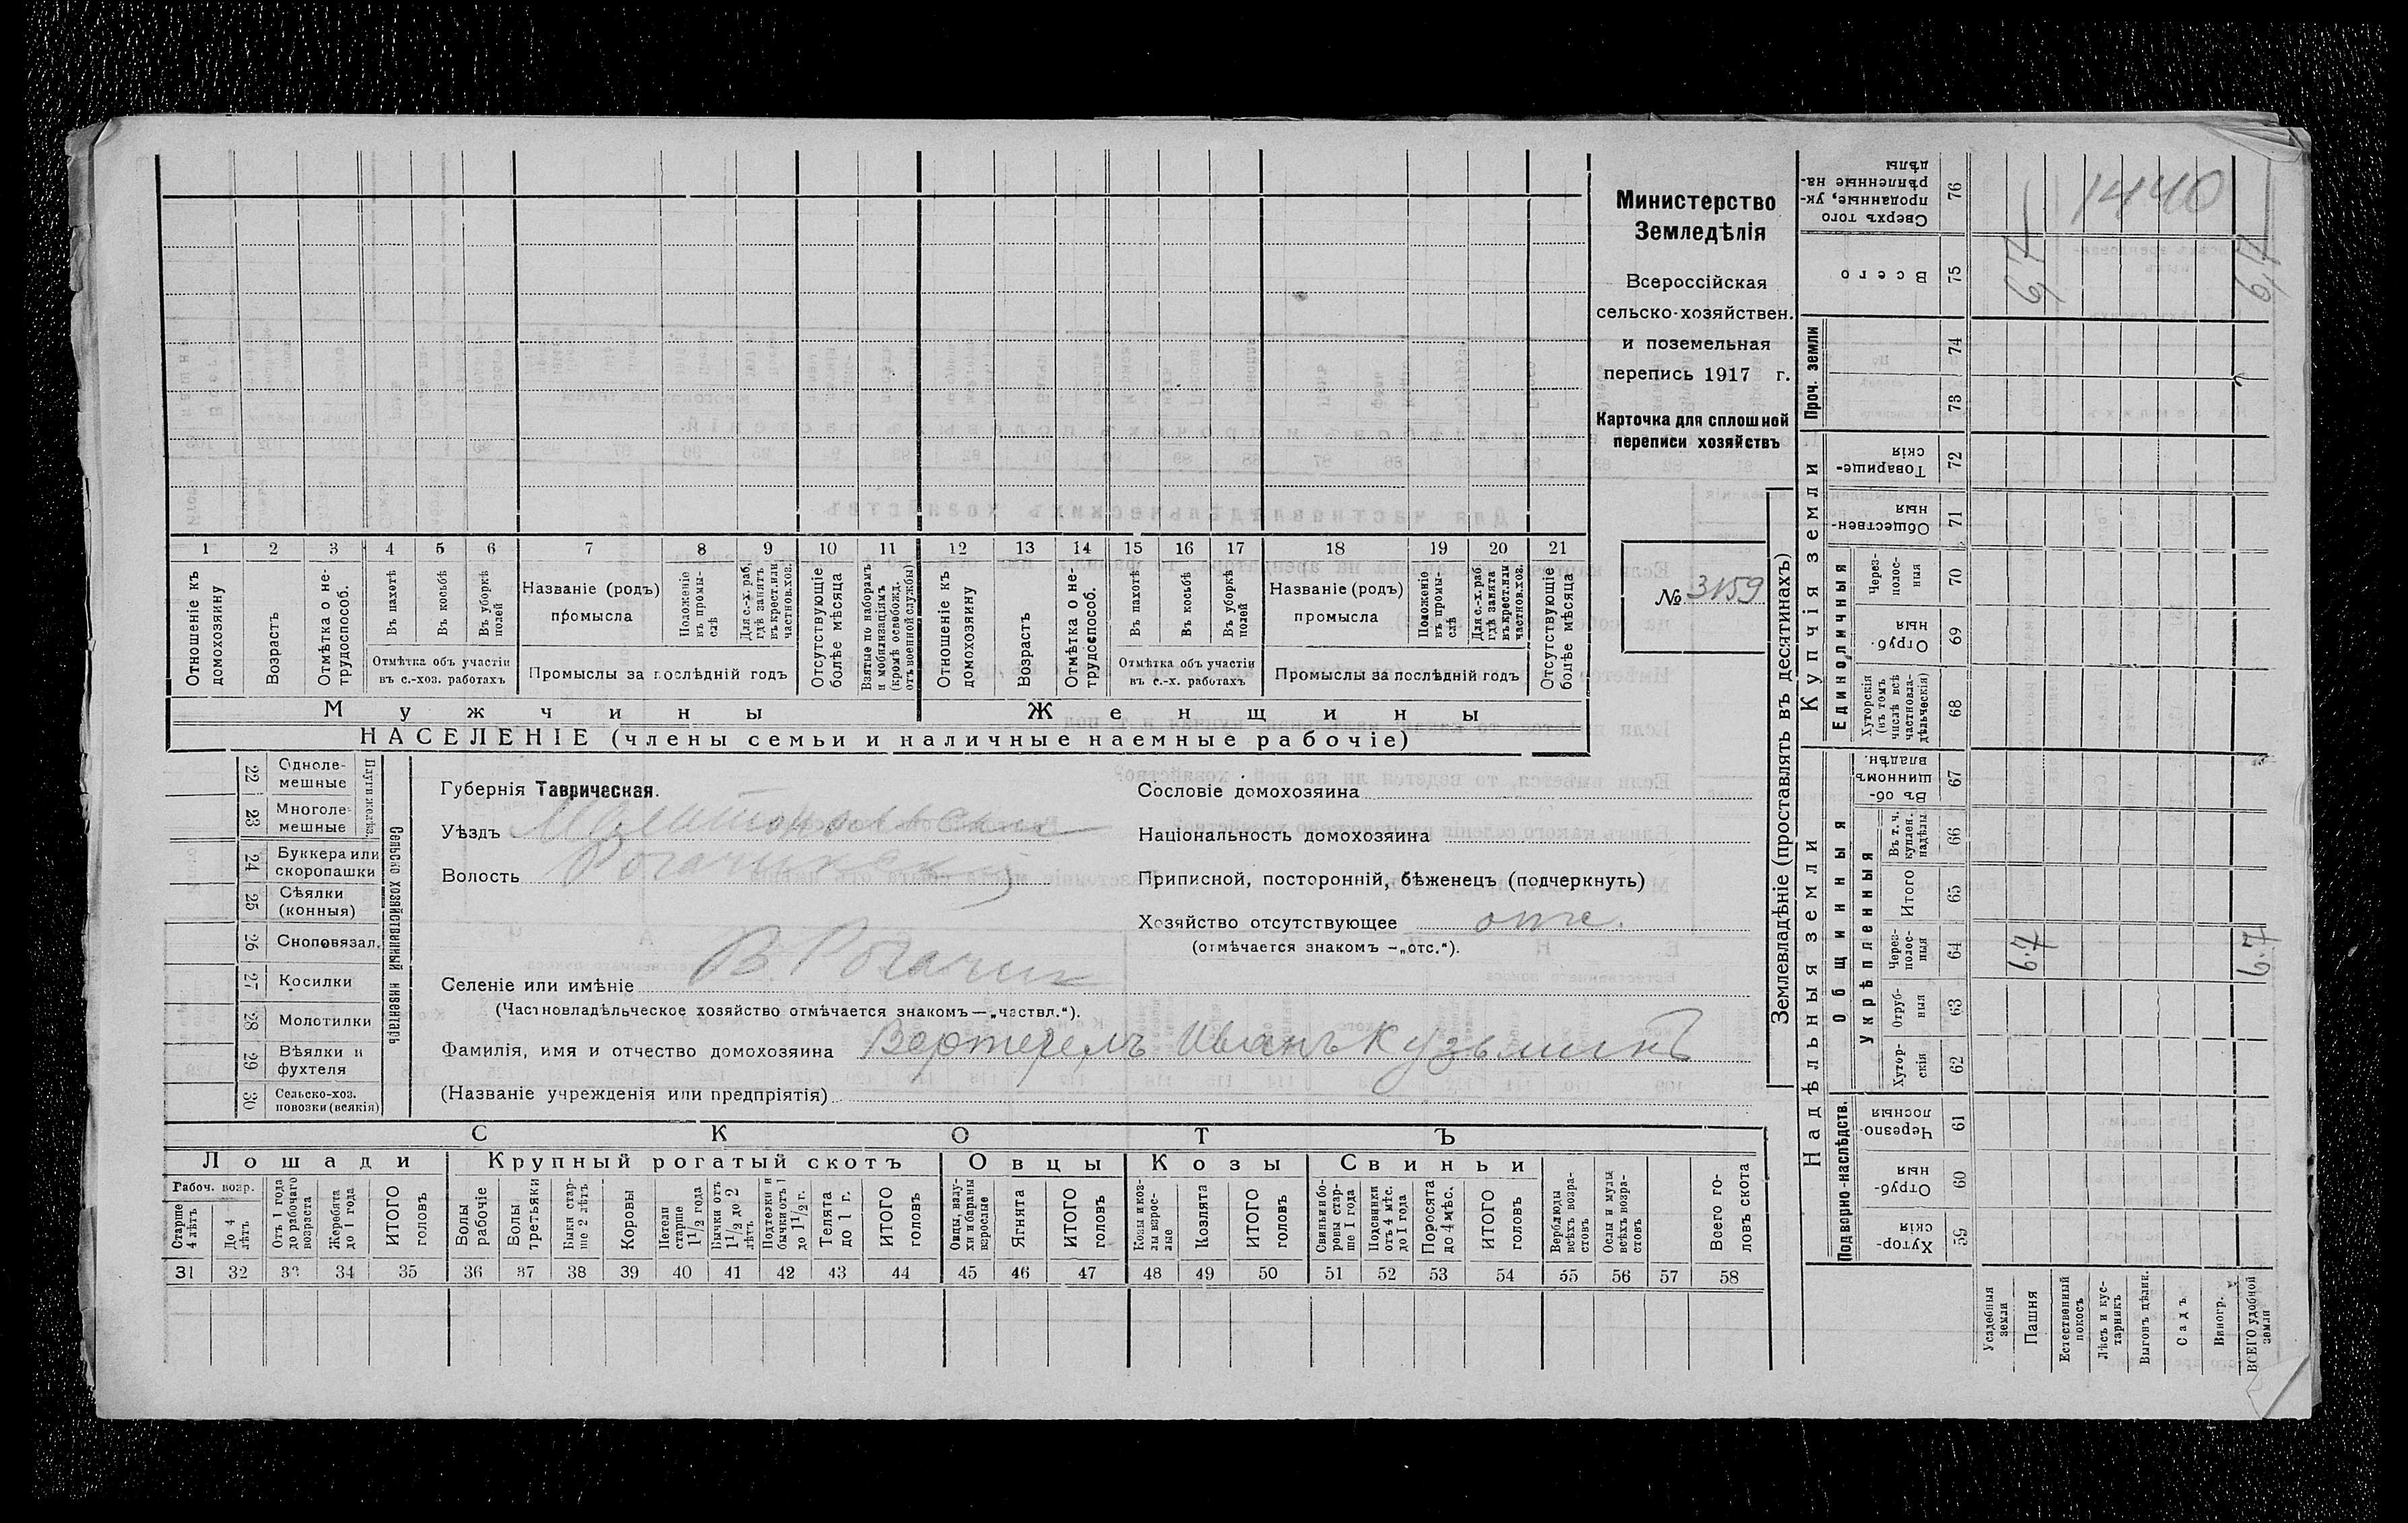 1 2 3 4 5 6 7 8 9 10 11 12 13 14 15 16 17 18 19 20 21
Отношеніе къ домохозяину
Возрастъ
Отмѣтка о не-
трудоспособ.
Въ пахотѣ
Въ косьбѣ
Въ уборкѣ
полей
Отмѣтка объ участіи
въ с.-хоз. работахъ
Названіе (родъ)
промысла
Положеніе
въ промы-
слѣ
Для с.-х. раб.
гдѣ занятъ
въ крест. или
частнов. хоз.
Промыслы за послѣдній годъ
Отсутствующіе
болѣе мѣсяца
Взятые по наборамъ
и мобилизаціямъ
(кромѣ освобожд.
отъ военной службы)
Отношеніе къ
домохозяину
Возрастъ
Отмѣтка о не-
трудоспособ.
Въ пахотѣ
Въ косьбѣ
Въ уборкѣ
полей
Отмѣтка объ участіи
въ с.-х. работахъ
Названіе (родъ)
промысла
Положеніе
въ промы-
слѣ
Для с.-х. раб.
гдѣ занята
въ крест. или
частнов. хоз.
Промыслы за послѣдній годъ
Отсутствующіе
болѣе мѣсяца
Мужчины
Женщины
НАСЕЛЕНІЕ (члены семьи и наличные наемные рабочіе)
Министерство
Земледѣлія
Всероссійская
сельско-хозяйствен.
и поземельная
перепись 1917 г.
Карточка для сплошной
переписи хозяйствъ
№ 3159
22 Однолемешные
23 Многолемешные
24 Буккера или
скоропашки
25 Сѣялки
(конныя)
26 Сноповязал.
27 Косилки
28 Молотилки
29 Вѣялки и
фухтеля
30 Сельско-хоз.
повозки (всякія)
Сельско хозяйственный инвентарь
Губернія Таврическая.
Уѣздъ Мелитопольскій
Волость Рогачикской
Селеніе или имѣніе В. Рогачик
(Частновладѣльческое хозяйство отмѣчается знакомъ—„частвл.“).
Фамилія, имя и отчество домохозяина Иванъ Кузьминъ
(Названіе учрежденія или предпріятія)
Сословіе домохозяина
Національность домохозяина
Приписной, посторонній, бѣженецъ (подчеркнуть)
Хозяйство отсутствующее отс.
(отмѣчается знакомъ —„отс.“).
СКОТЪ
Лошади
Крупный рогатый скотъ
Овцы
Козы
Свиньи
Рабоч. возр.
Старше
4 лѣтъ
До 4
лѣтъ
Отъ 1 года
до рабочаго
возраста
Жеребята
до 1 года
ИТОГО
головъ
Волы
рабочіе
Волы
третьяки
Быки стар-
ше 2 лѣтъ
Коровы
Нетели
старше
1½ года
Бычки отъ
1½ до 2
лѣтъ
Подтелки и
бычки отъ 1
до 1½ г.
Телята
до 1 г.
ИТОГО
головъ
Овцы, валу-
хи и бараны
взрослые
Ягнята
ИТОГО
головъ
Козы и коз-
лы взрос-
лые
Козлята
ИТОГО
головъ
Свиньи и бо-
ровы стар-
ше 1 года
Подсвинки
отъ 4 мѣс.
до 1 года
Поросята
до 4 мѣс.
ИТОГО
головъ
Верблюды
всѣхъ возра-
стовъ
Ослы и мулы
всѣхъ возра-
стовъ
Всего го-
ловъ скота
31 32 33 34 35 36 37 38 39 40 41 42 43 44 45 46 47 48 49 50 51 52 53 54 55 56 57 58
Землевладѣніе (проставлять въ десятинахъ)
Надѣльныя земли
Купчія земли
Проч. земли
Подворно-наслѣдств.
Общинныя
Укрѣпленныя
Единоличныя
Сверхъ того
проданные, ук-
рѣпленные на-
дѣлы
76
Всего
75
74
73
Товарище-
скія
72
Обществен-
ныя
71
Через-
полос-
ныя
70
Отруб-
ныя
69
Хуторскія
(въ томъ
числѣ всѣ
частновла-
дѣльческія)
68
Въ об-
щинномъ
владѣн.
67
Въ т. ч.
куплен.
надѣлы
66
Итого
65
Через-
полос-
ныя
64
Отруб-
ныя
63
Хутор-
скія
62
Черезпо-
лосныя
61
Отруб-
ныя
60
Хутор-
скія
59
Усадебныя
земли
Пашня
Естественный
покосъ
Лѣсъ и кус-
тарникъ
Выгонъ цѣлин.
Садъ
Виногр.
ВСЕГО удобной
земли
1440
67
67
6.7
6.7